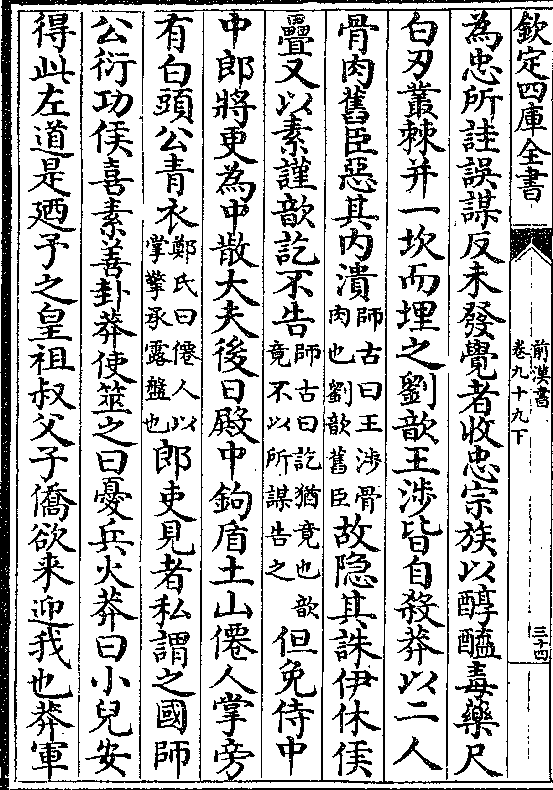 欽定四庫全書
前漢書
卷九十九下
三十四
為忠所詿誤謀反未發覺者收忠宗族以醇醯毒藥尺
白刃叢棘并一坎而埋之劉歆王涉皆自殺莽以二人
骨肉舊臣惡其内潰師古曰王涉骨肉也劉歆舊臣故隐其誅伊休侯
疊又以素謹歆訖不告師古曰訖猶竟也歆竟不以所謀告之但免侍中
中郎將更為中散大夫後日殿中鉤盾土山僊人掌旁
有白頭公青衣鄭氏曰僊人以掌擎承露盤也郎吏見者私謂之國師
公衍功侯喜素善卦莽使筮之曰憂兵火莽曰小兒安
得此左道是廼予之皇祖叔父子僑欲来迎我也莽軍